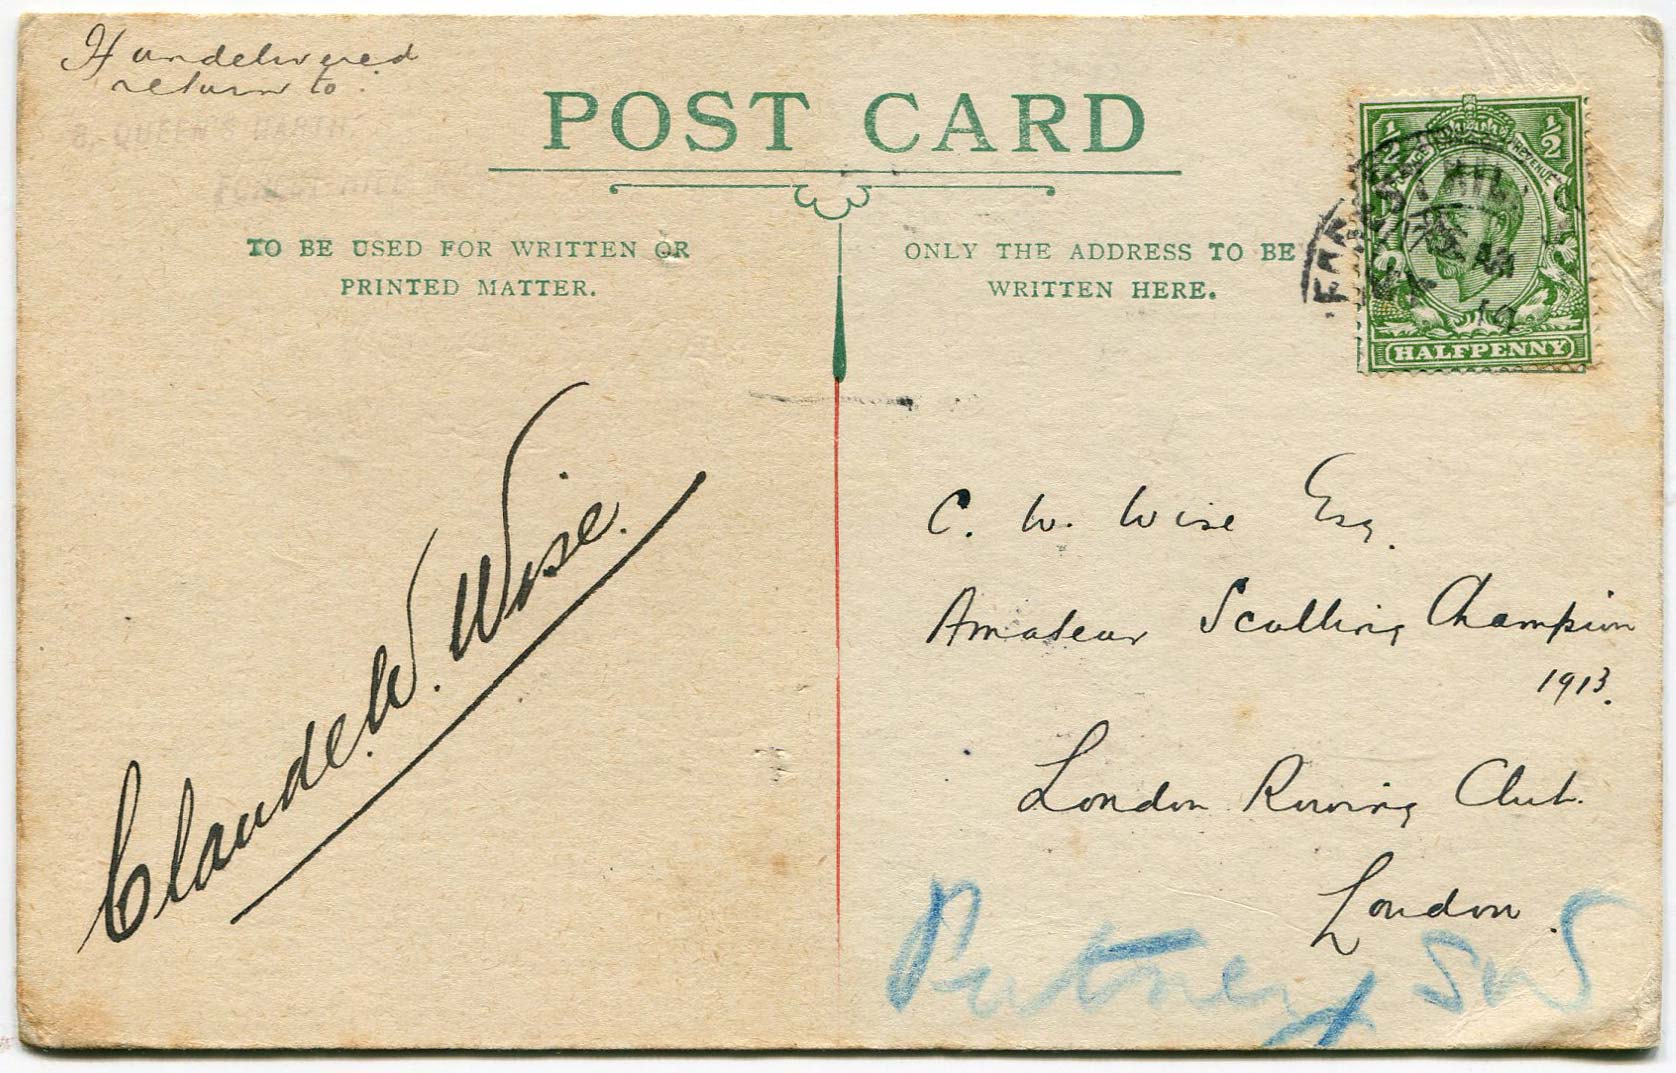 If undelivered
return to:
8, QUEEN'S GARTH,
FOREST HILL
POST CARD
TO BE USED FOR WRITTEN OR
PRINTED MATTER.
ONLY THE ADDRESS TO BE
WRITTEN HERE.
POSTAGE REVENUE
1/2 1/2
HALFPENNY
Claude. W. Wise.
C. W. Wise Esq.
Amateur Sculling Champion
1913.
London Rowing Club.
London.
Putney SW